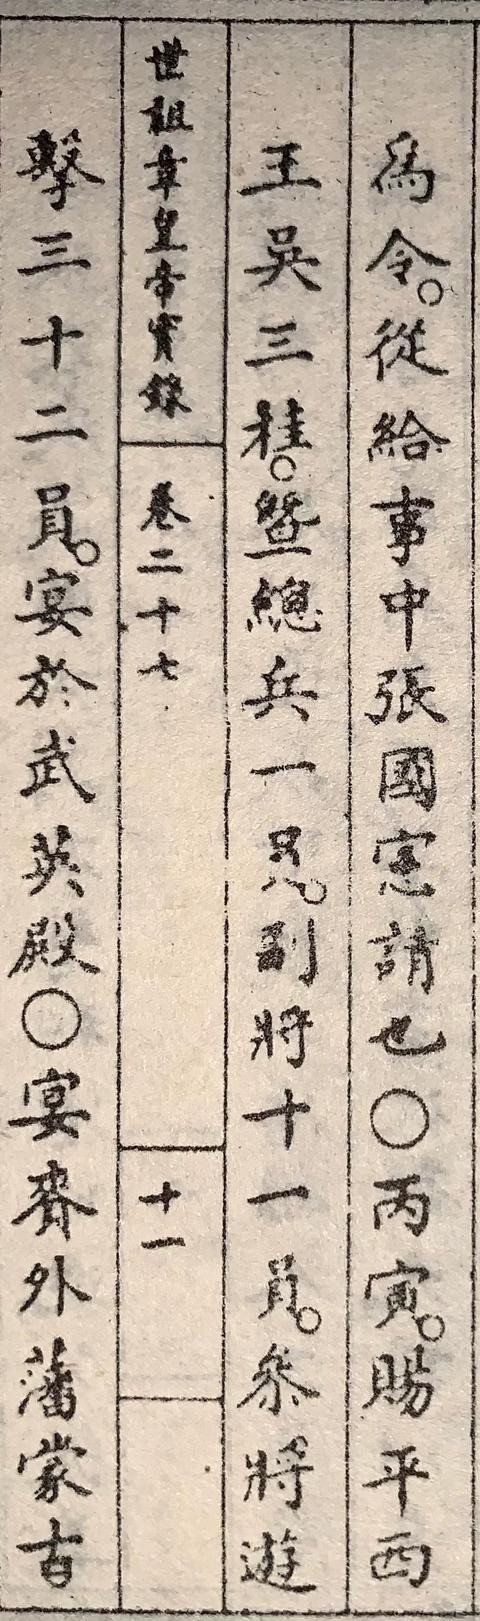 爲令。從給事中張國憲請也○丙寅。賜平西
王吳三桂。暨總兵一員。副將十一員。參將遊
世祖章皇帝實錄 卷二十七 十一
擊三十二員。宴於武英殿○宴賚外藩蒙古